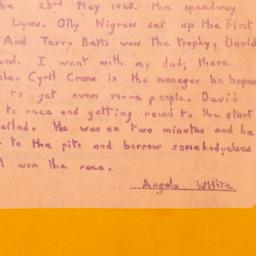 he 23rd May 1965. the speedway
Lynn. Olly Nigren set up the first
And Terry Betts won the trophy, David
ord. I went with my dad, there
ple. Cyril Crane is the manager he hopes
to get even more people. David
to race and getting reved to the start
ailed. He was on two minutes and he
to the pits and borrow somebodyelses
I won the race.
Angela White